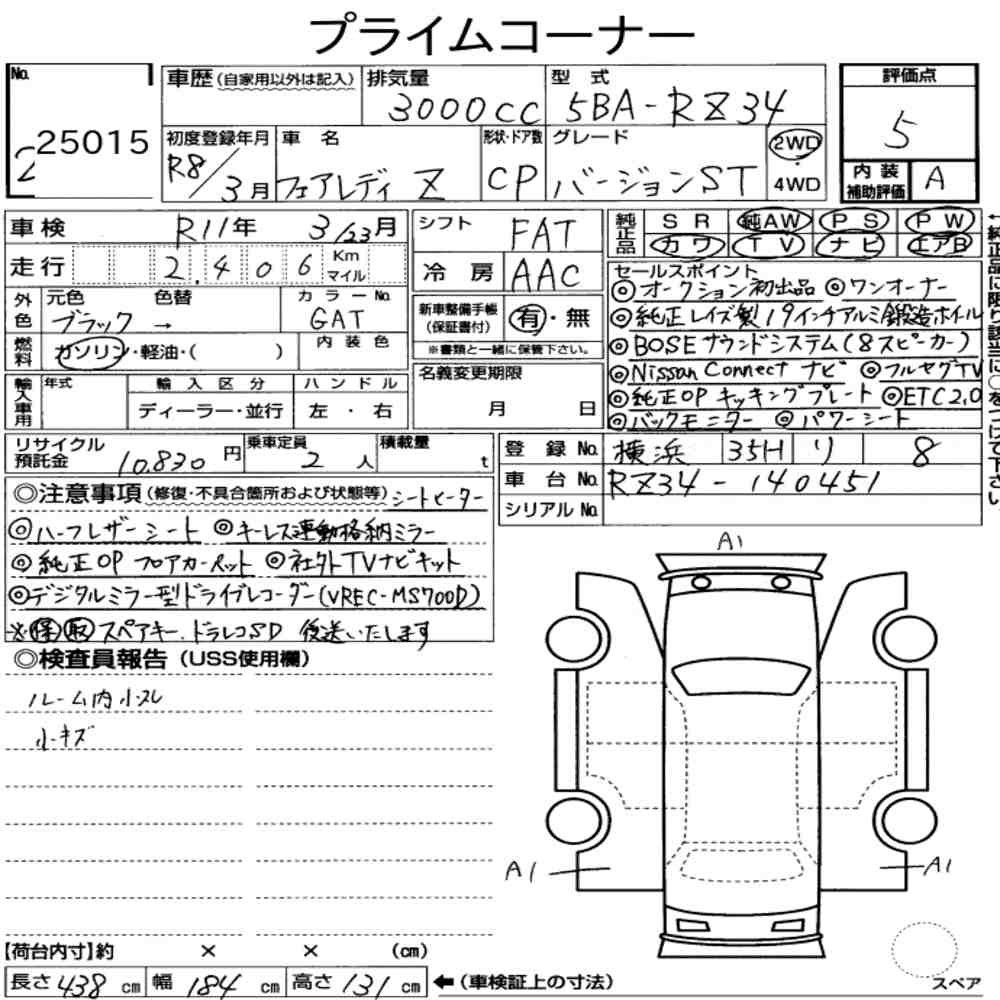 プライムコーナー
No. 25015
車歴 (自家用以外は記入)
排気量 3000cc
型式 5BA-RZ34
評価点 5
初度登録年月 R8/3月
車名 フェアレディZ
形状・ドア数 CP
グレード バージョンST
2WD・4WD
内装補助評価 A
車検 R11年 3/23月
シフト FAT
純正品 SR 純AW PS PW
カワ TV ナビ エアB
走行 2,406 Km マイル
冷房 AAC
外色 元色 ブラック → 色替
カラーNo. GAT
内装色
燃料 ガソリン・軽油・( )
新車整備手帳(保証書付) 有・無
※書類と一緒に保管下さい。
輸入車用 年式 輸入区分 ハンドル
ディーラー・並行 左・右
名義変更期限 月 日
セールスポイント
◎オークション初出品 ◎ワンオーナー
◎純正レイズ製19インチアルミ鍛造ホイール
◎BOSEサウンドシステム(8スピーカー)
◎Nissan Connect ナビ ◎フルセグTV
◎純正OPキッキングプレート ◎ETC2.0
◎バックモニター ◎パワーシート
リサイクル預託金 10,830円
乗車定員 2人
積載量 t
登録No. 横浜 35H リ 8
車台No. RZ34-140451
シリアルNo.
◎注意事項(修復・不具合箇所および状態等)シートヒーター
◎ハーフレザーシート ◎キーレス連動格納ミラー
◎純正OPフロアカーペット ◎社外TVナビキット
◎デジタルミラー型ドライブレコーダー(VREC-MS700D)
※保取スペアキー、ドラレコSD 後送いたします
◎検査員報告(USS使用欄)
ルーム内小スレ
小キズ
A1
A1
A1
【荷台内寸】約 × × (cm)
長さ438cm 幅184cm 高さ131cm ←(車検証上の寸法)
スペア